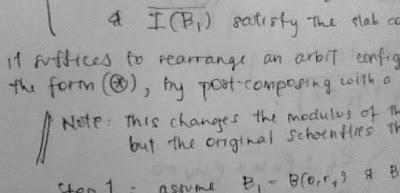 & \overline{I(B_1)} satisfy the slab co
it suffices to rearrange an arbit config
the form (⊛), by post-composing with a
Note: this changes the modulus of th
but the original Schoenflies th
Step 1 : assume B_1 = B(0,r_1) & B